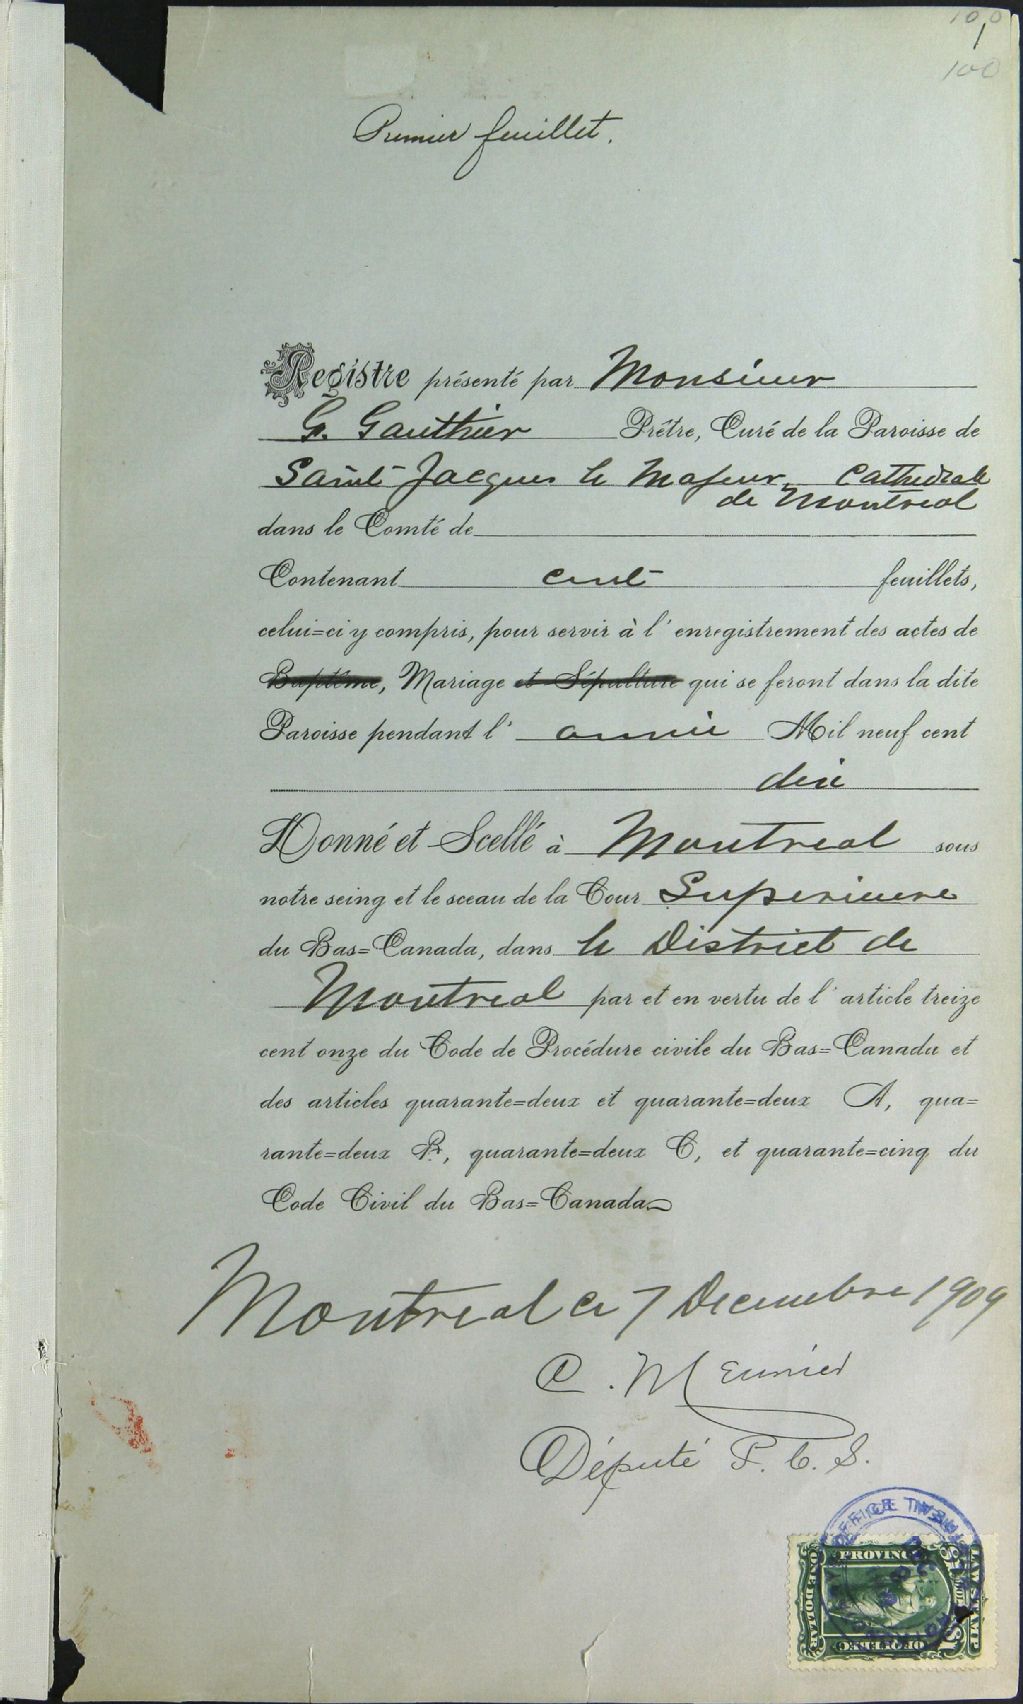 100
1
100
Premier feuillet.
Registre présenté par Monsieur
G. Gauthier Prêtre, Curé de la Paroisse de
Saint-Jacques le Majeur, Cathedrale
de Montreal
dans le Comté de
Contenant cent feuillets,
celui=ci y compris, pour servir à l'enregistrement des actes de
Baptême, Mariage et Sépulture qui se feront dans la dite
Paroisse pendant l'année Mil neuf cent
dix
Donné et Scellé à Montreal sous
notre seing et le sceau de la Cour Superieure
du Bas=Canada, dans le District de
Montreal par et en vertu de l'article treize
cent onze du Code de Procédure civile du Bas=Canada et
des articles quarante=deux et quarante=deux A, qua=
rante=deux B, quarante=deux C, et quarante=cinq du
Code Civil du Bas=Canada
Montreal ce 7 Decembre 1909
C. Meunier
Député P. C. S.
PROVINCE
OF QUEBEC
LAW STAMP
ONE DOLLAR
$1